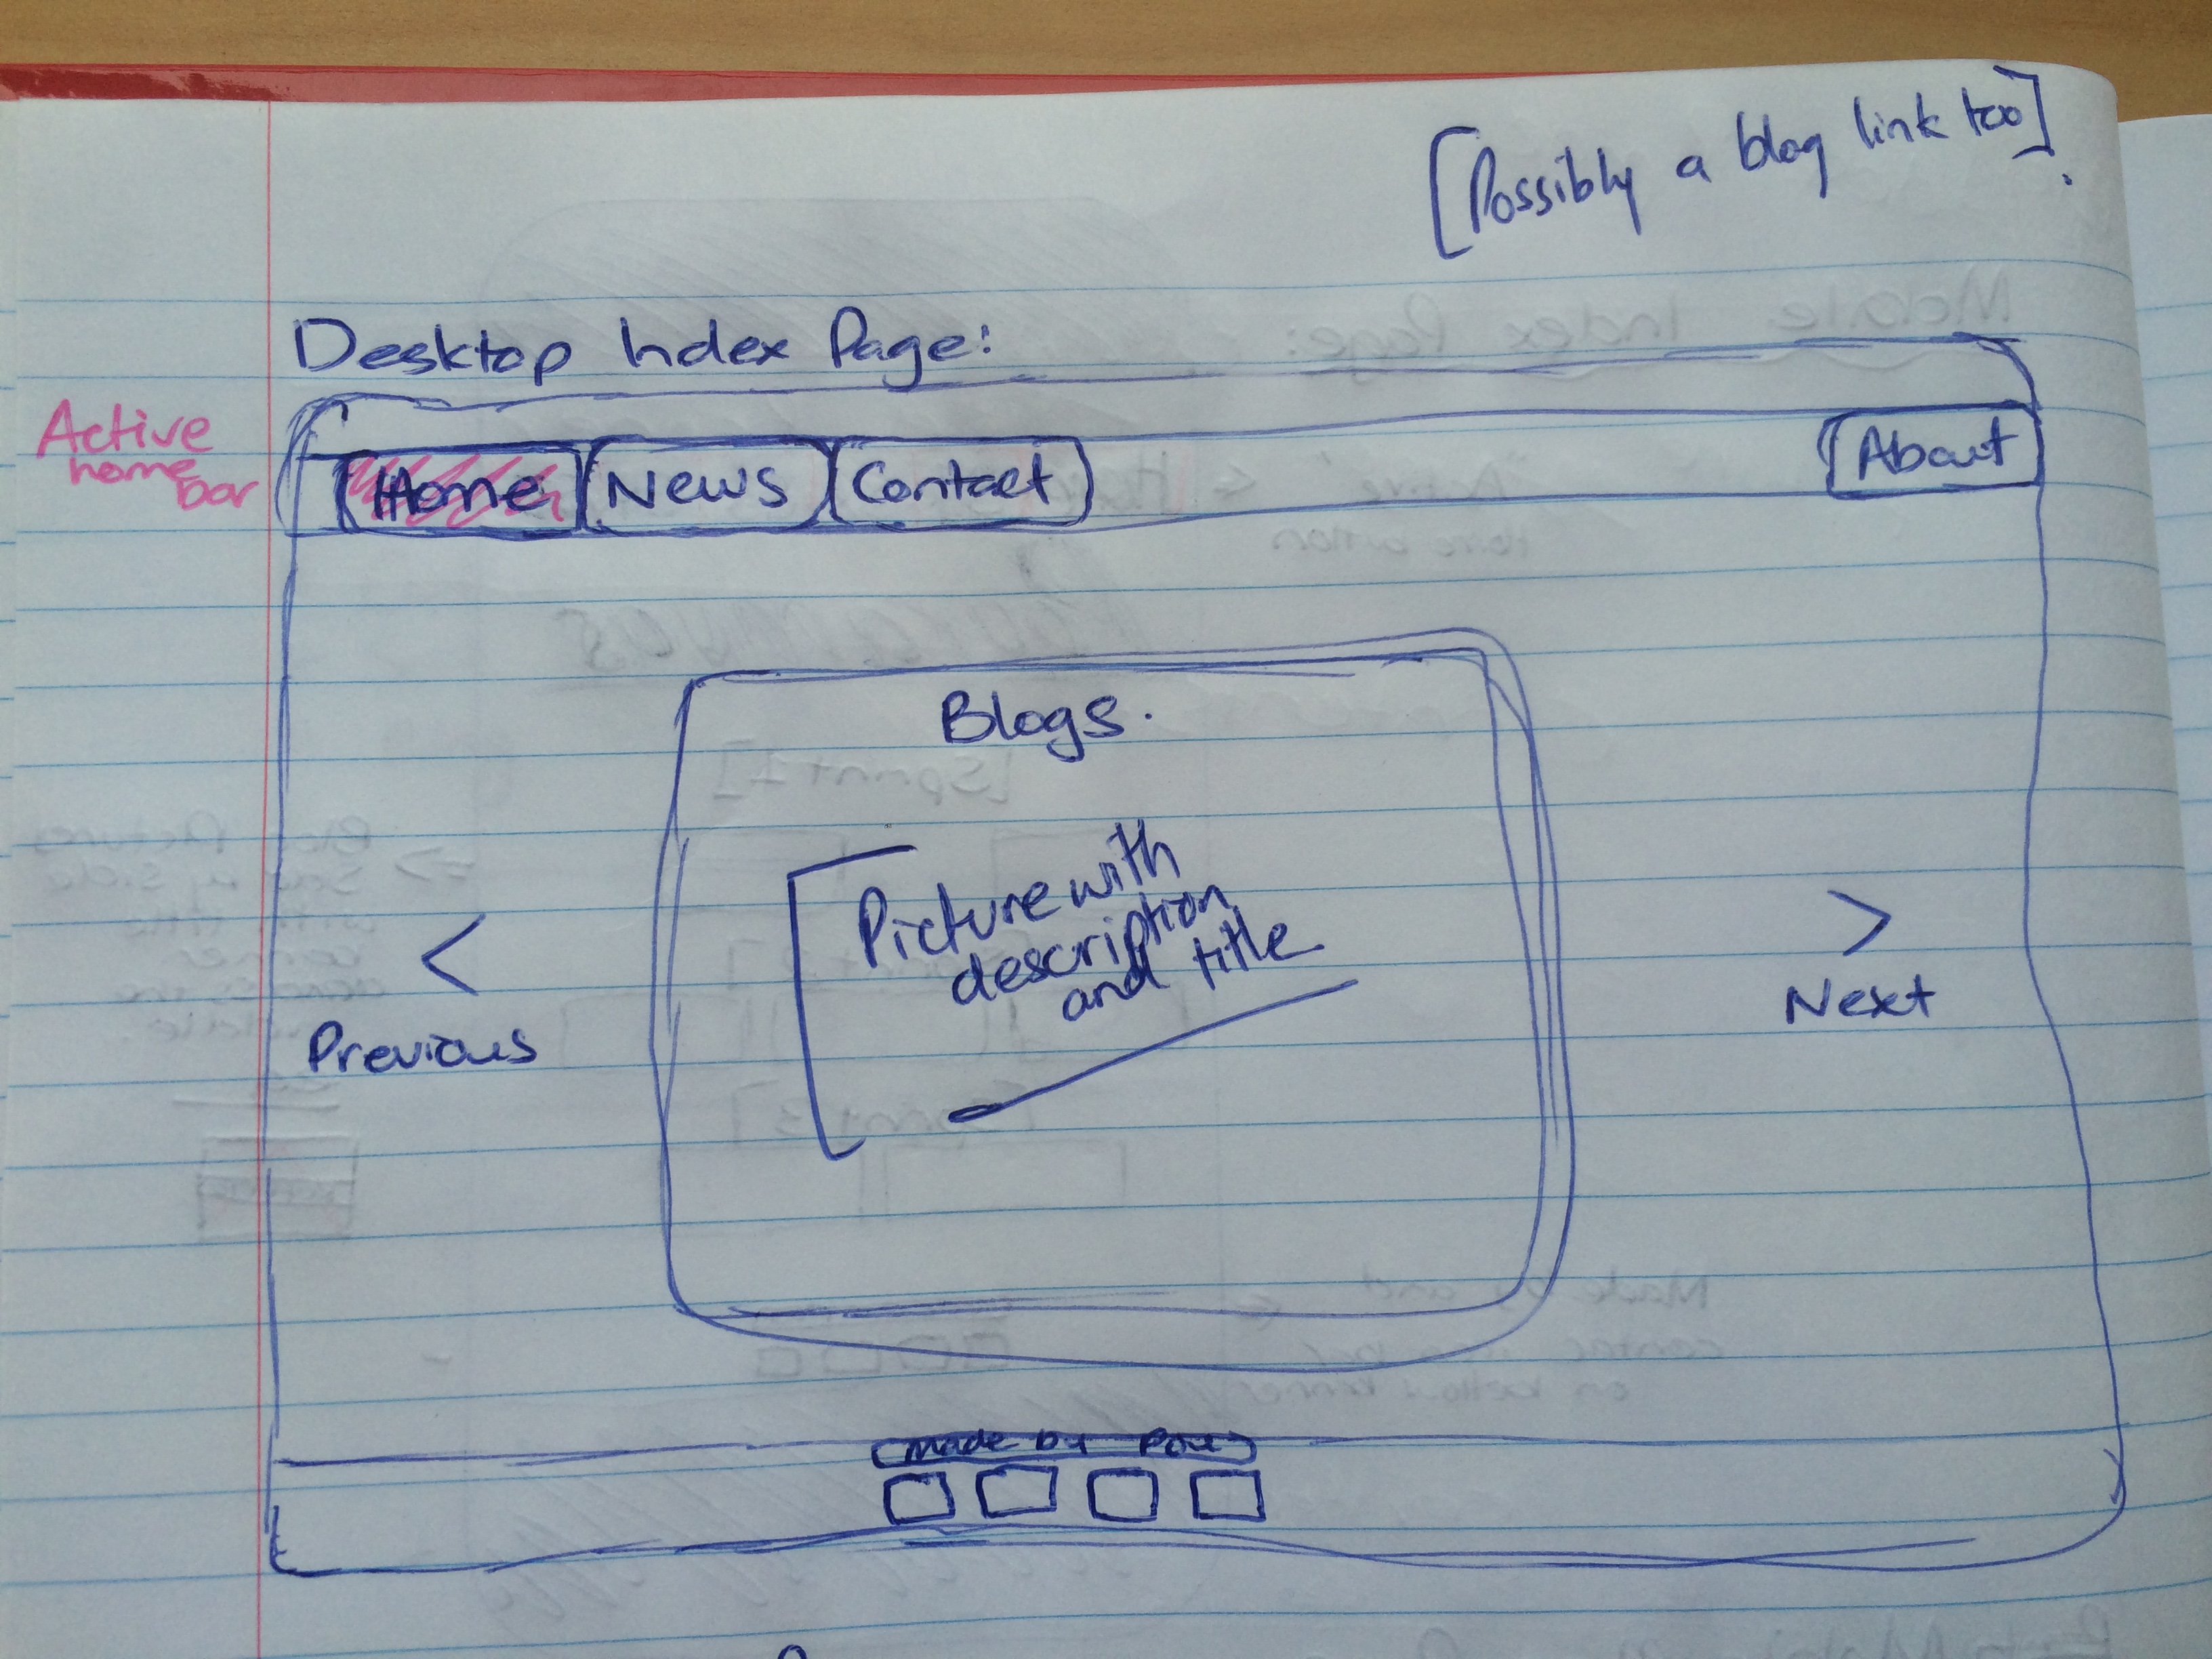 [Possibly a blog link too].
Desktop Index Page:
Active
home
bar
Home
News
Contact
About
Blogs.
Picture with
description
and title
<
Previous
>
Next
made by